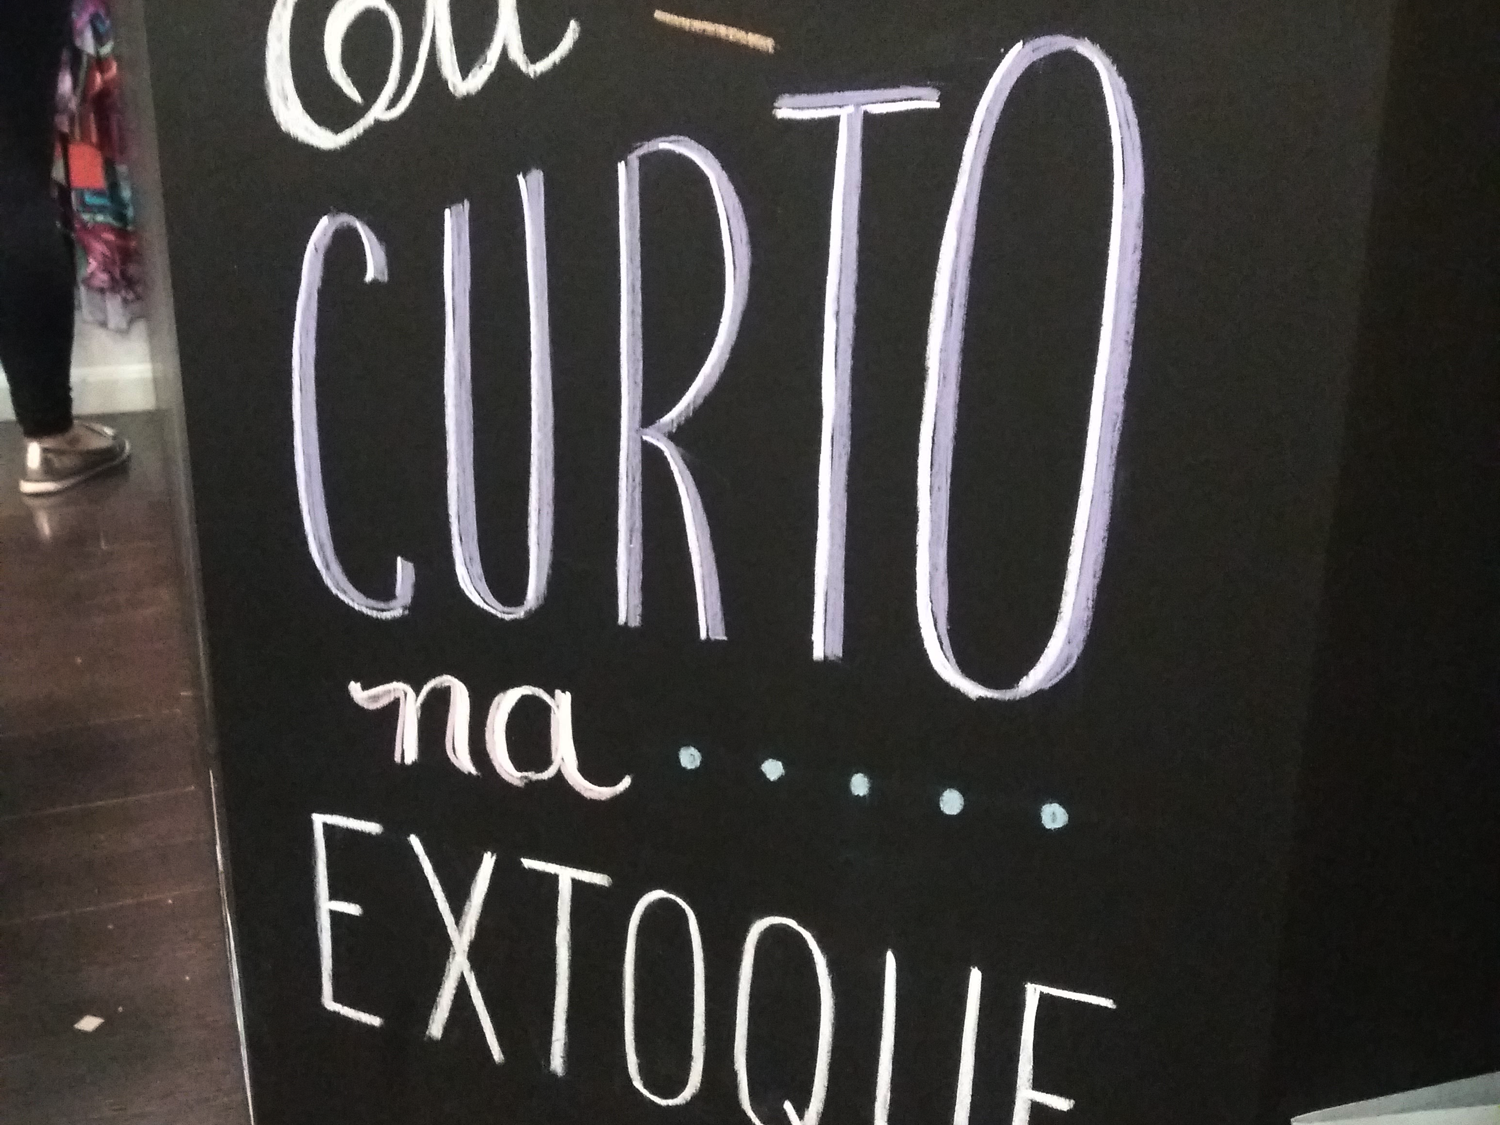 Eu
CURTO
na .....
EXTOQUE